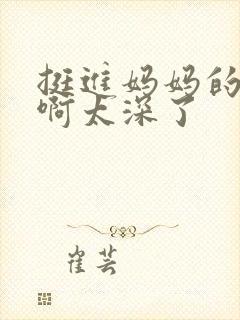 挺进妈妈的
啊太深了
崔芸